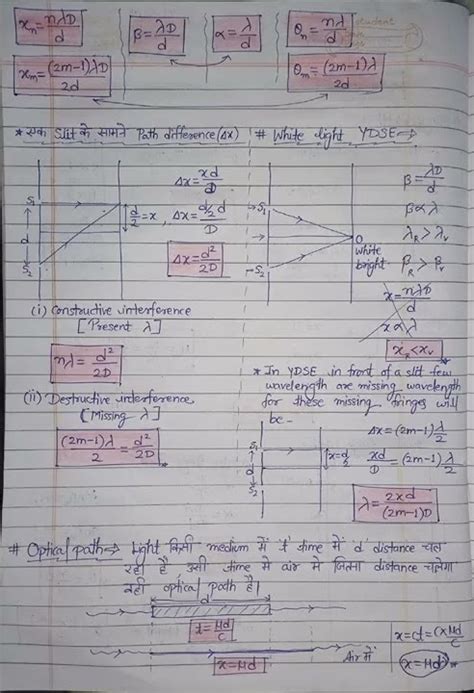 xₙ = nλD/d
β = λD/d
α = λ/d
θₙ = nλ/d
xₘ = (2m-1)λD/2d
θₘ = (2m-1)λ/2d
* एक Slit के सामने Path difference (Δx)
S₁
S₂
d
d/2 = x
Δx = xd/D
Δx = d/2 d/D
Δx = d²/2D
(i) Constructive interference
[Present λ]
nλ = d²/2D
(ii) Destructive interference
[Missing λ]
(2m-1)λ/2 = d²/2D
# White light YDSE ⇒
S₁
S₂
O
White
bright
β = λD/d
β ∝ λ
λ_R > λ_V
β_R > β_V
x = nλD/d
x ∝ λ
x_R < x_V
* In YDSE in front of a slit few
wavelength are missing wavelength
for these missing fringes will
be -
S₁
S₂
d
Δx = (2m-1)λ/2
xd/D = (2m-1)λ/2
λ = 2xd/(2m-1)D
# Optical path ⇒ Light किसी medium में 't' time में 'd' distance चल
रही है उसी time में air में जितना distance चलेगा
वही optical path है।
d
t = μd/c
x = μd
Air में
x = ct = c×μd/c
x = μd